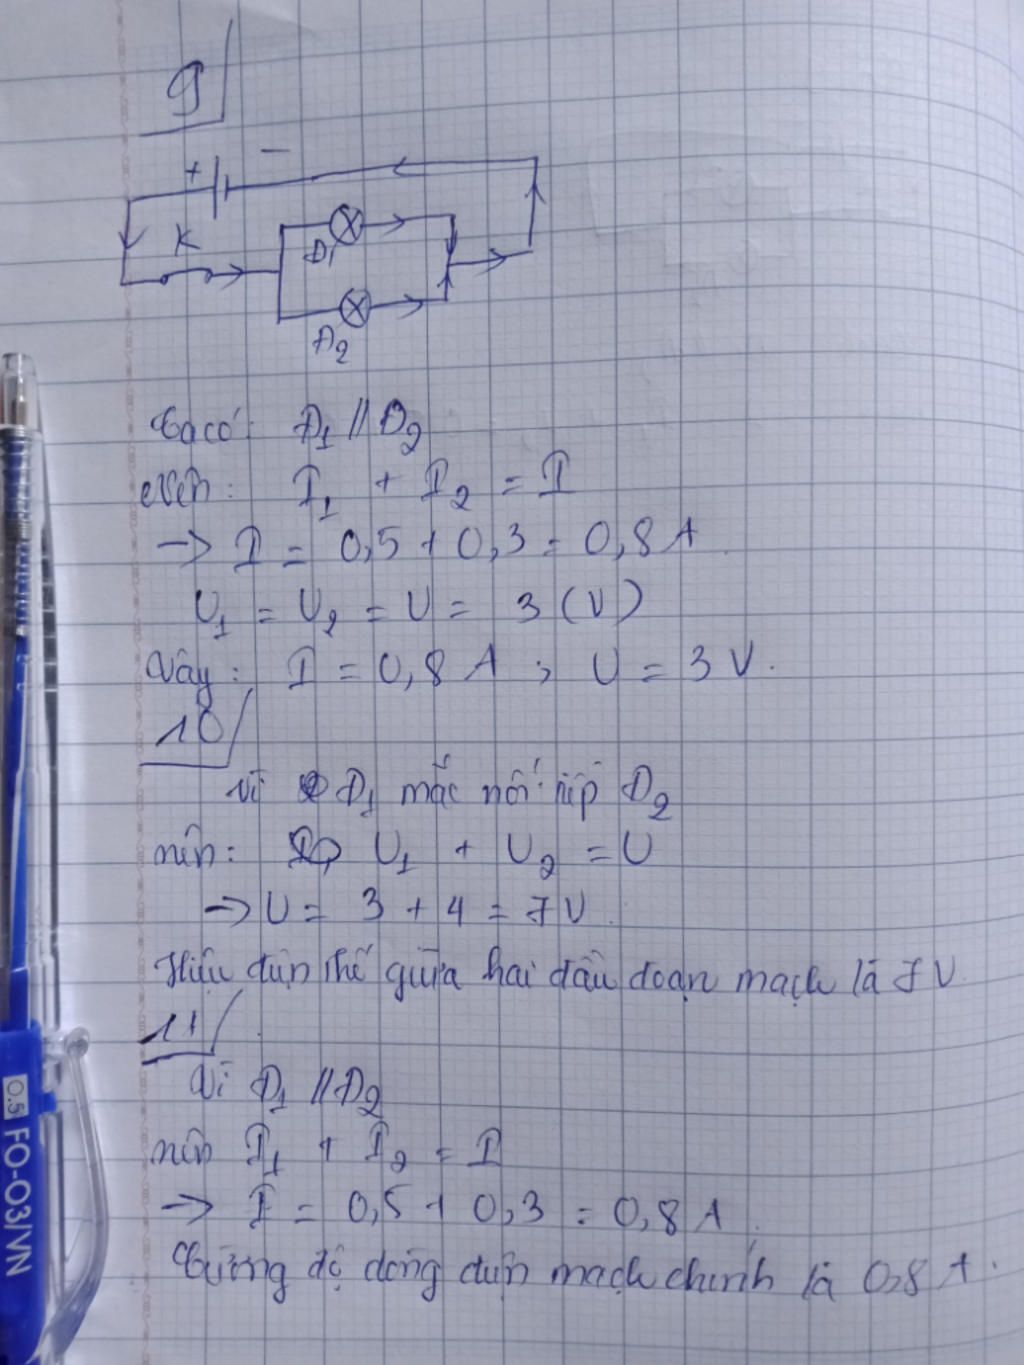 9/
+ -
K
Đ1
Đ2
Ta có: Đ1 // Đ2
Nên: I1 + I2 = I
-> I = 0,5 + 0,3 = 0,8 A.
U1 = U2 = U = 3 (V)
Vậy: I = 0,8 A ; U = 3 V.
10/
Vì Đ1 mắc nối tiếp Đ2
nên: U1 + U2 = U
-> U = 3 + 4 = 7 V.
Hiệu điện thế giữa hai đầu đoạn mạch là 7 V.
11/
Vì Đ1 // Đ2
nên I1 + I2 = I
-> I = 0,5 + 0,3 = 0,8 A.
Cường độ dòng điện mạch chính là 0,8 A.
0.5 FO-03/VN